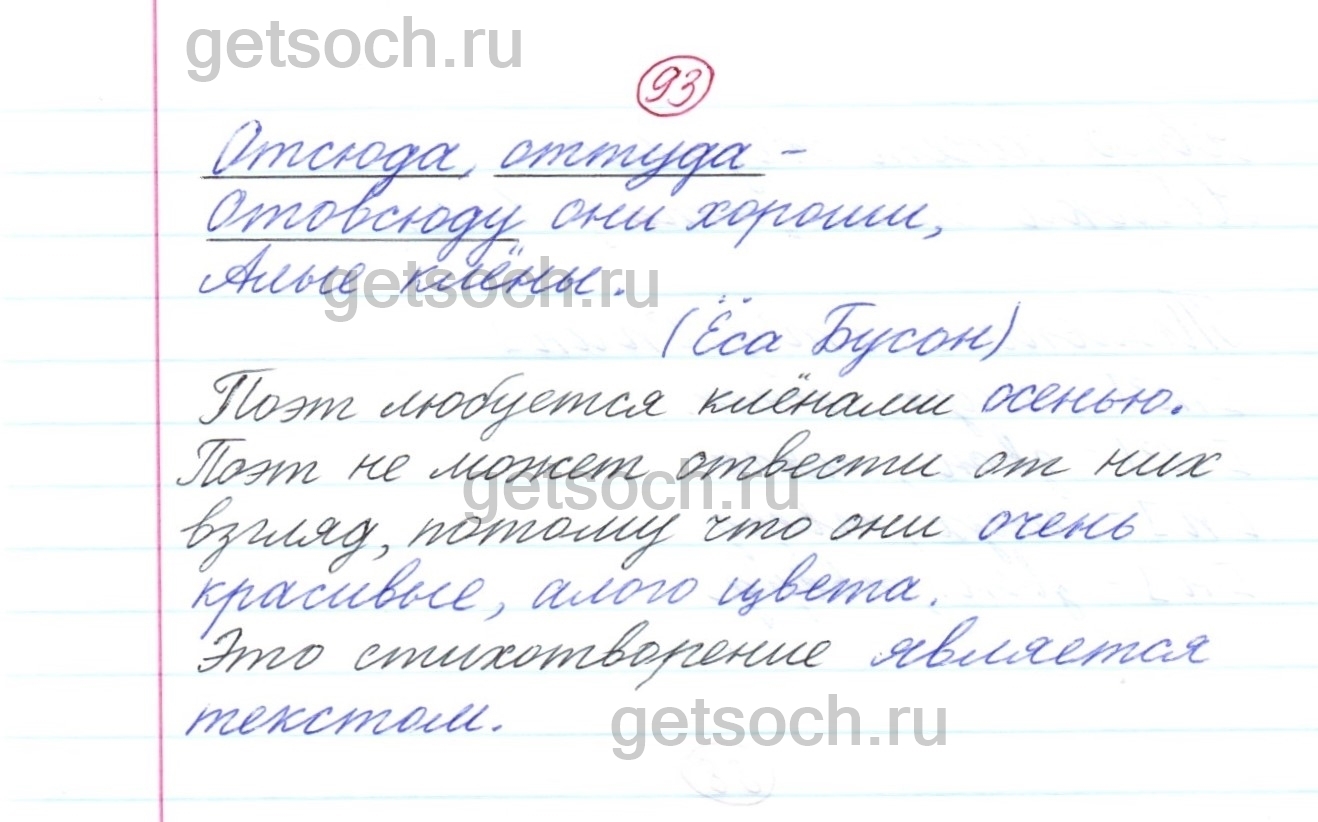 getsoch.ru
93
Отсюда, оттуда –
Отовсюду они хороши,
Алые клёны.
getsoch.ru
(Ёса Бусон)
Поэт любуется клёнами осенью.
Поэт не может отвести от них
getsoch.ru
взгляд, потому что они очень
красивые, алого цвета.
Это стихотворение является
текстом.
getsoch.ru